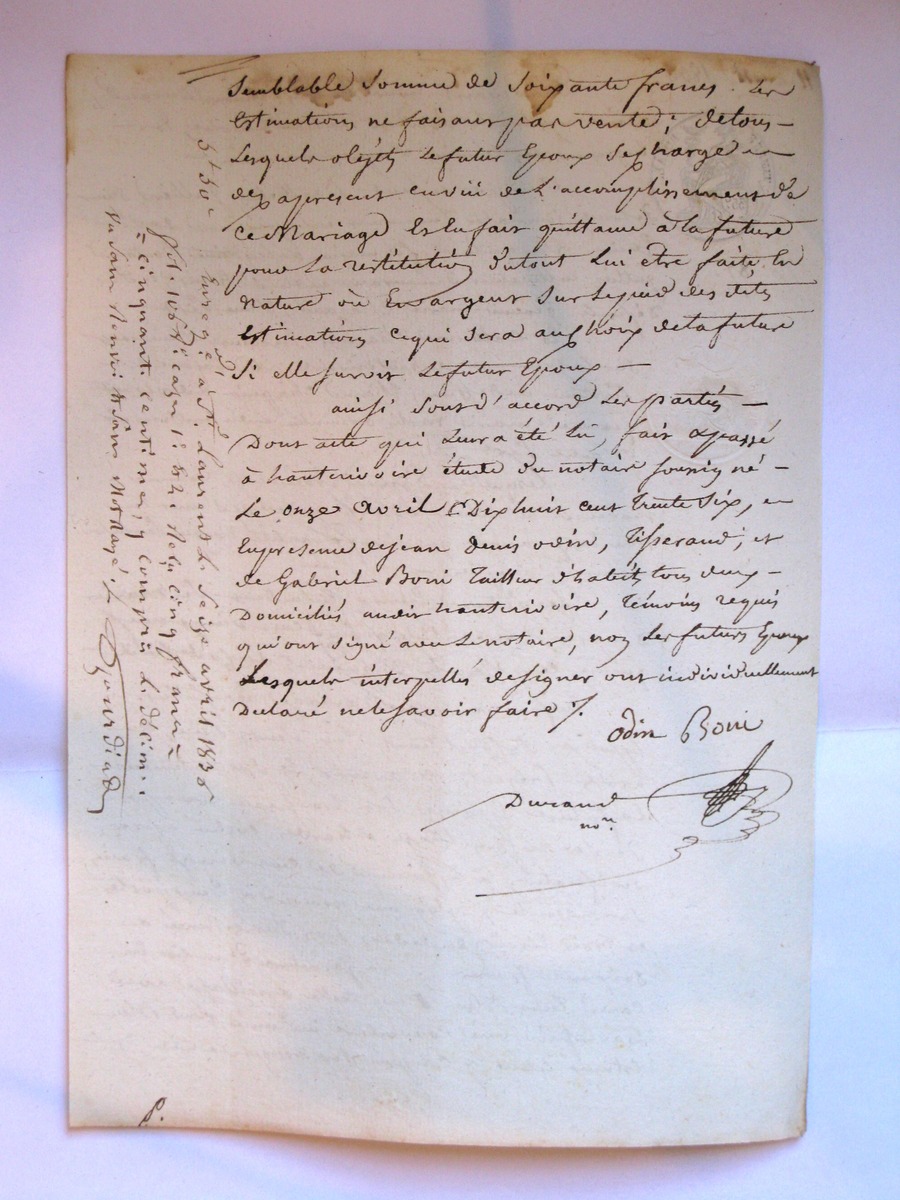 Semblable somme de soixante francs. Les
Estimations ne faisant pas vente; de tous
Lesquels objets le futur Epoux se charge
dez apresent en vüe de l'accomplissement de
ce Mariage Et en fait quittance à la future
pour la restitution du tout lui être faite En
Nature où En argent sur le pied des dites
Estimations ce qui sera au choix de la future
Si elle survit le futur Epoux —
ainsi sont d'accord les parties —
Dont acte qui leur a été lü, fait & passé
à hauterivoire étude du notaire soussigné —
Le onze avril Dix huit cent trente Six, en
En presence de jean denis odin, Tisserand, et
de Gabriel Boni Tailleur d'habits tous deux —
Domiciliés audit hauterivoire, Témoins requis
qu'ont signé avec le notaire, non les futurs Epoux
Lesquels interpellés de signer ont individuellement
Declaré ne le savoir faire ./.
Odin Boni
Durand
no.re
5f 50c
Enregé à St Laurent le Seize avril 1836
fo. 106 Ro case 1e & 2e Reçu cinq francs
cinquante centimes, y compris le décime